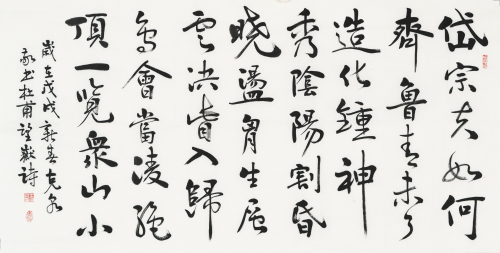 岱宗夫如何
齊魯青未了
造化鍾神
秀陰陽割昏
曉盪胷生層
雲決眥入歸
鳥會當凌絕
頂一覽衆山小
歲在戊戌新春
書杜甫望嶽詩